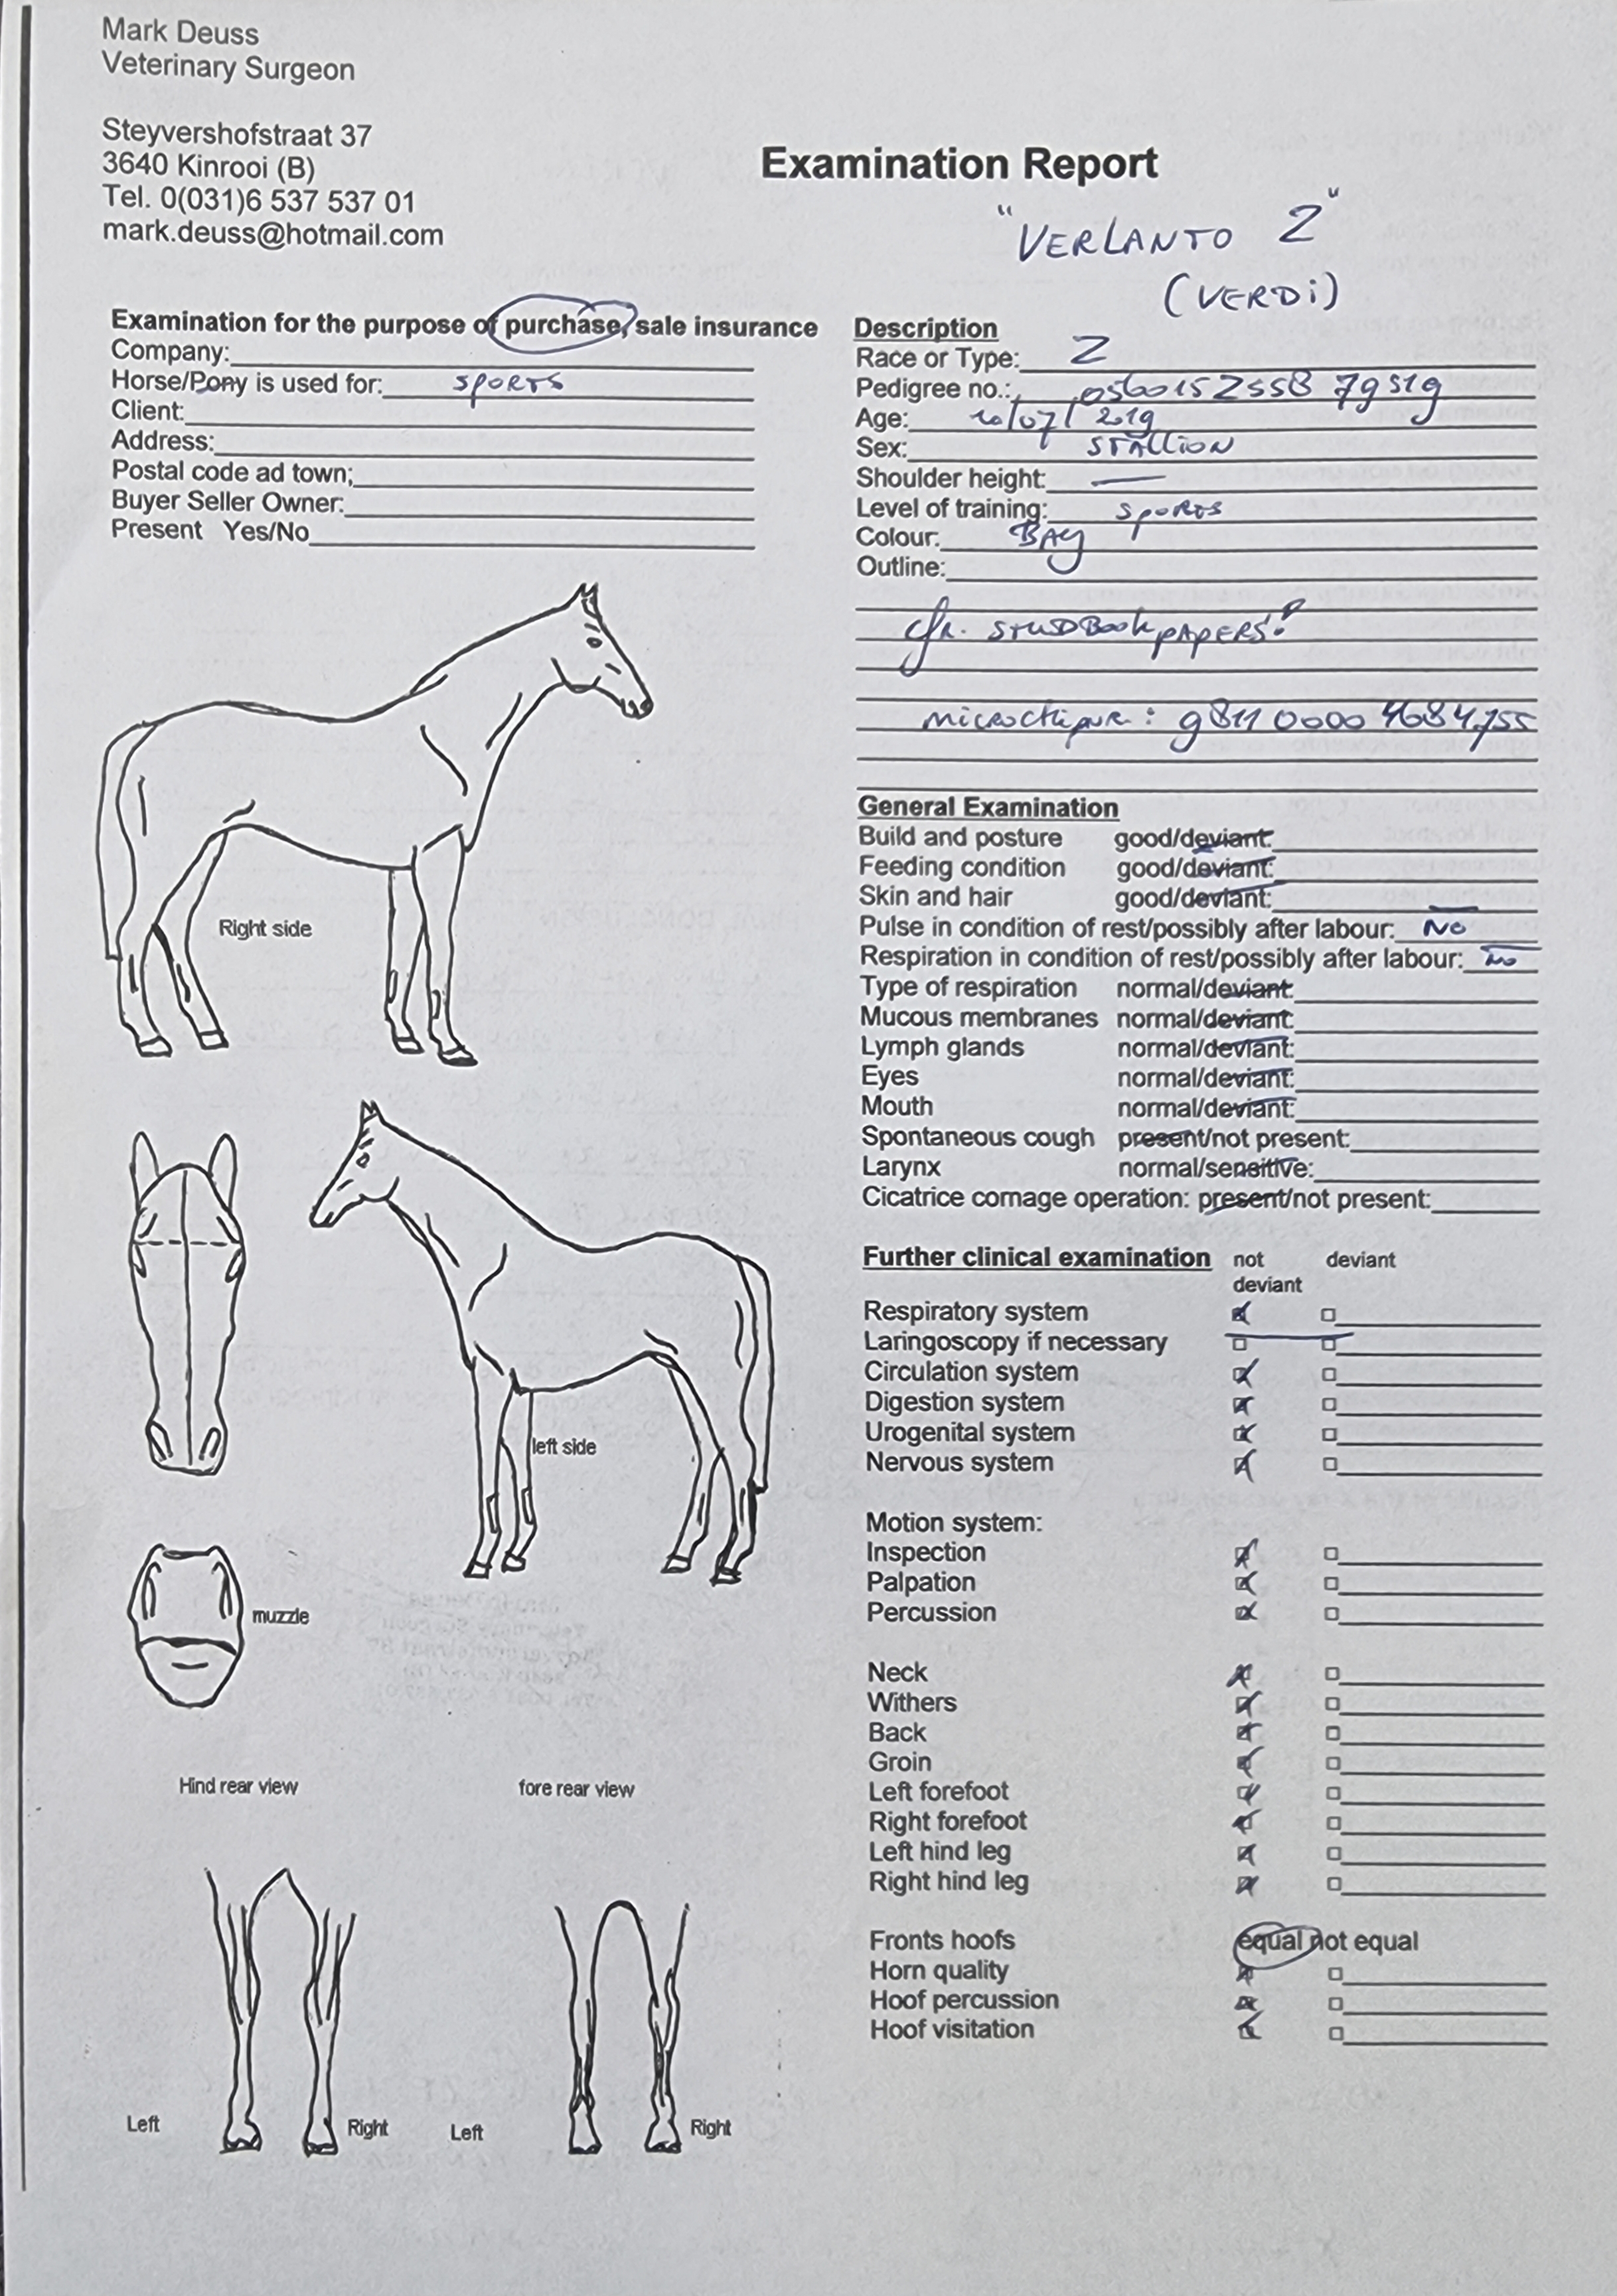 Mark Deuss
Veterinary Surgeon
Steyvershofstraat 37
3640 Kinrooi (B)
Tel. 0(031)6 537 537 01
mark.deuss@hotmail.com
Examination Report
"VERLANTO Z"
(VERDi)
Examination for the purpose of purchase, sale insurance
Company:
Horse/Pony is used for: SPORTS
Client:
Address:
Postal code ad town;
Buyer Seller Owner:
Present Yes/No
Right side
left side
muzzle
Hind rear view
fore rear view
Left
Right
Left
Right
Description
Race or Type: Z
Pedigree no.:
Age: /07/2019
Sex: STALLION
Shoulder height: —
Level of training: SPORTS
Colour: BAY
Outline:
STUDBOOK PAPERS!
General Examination
Build and posture good/deviant:
Feeding condition good/deviant:
Skin and hair good/deviant:
Pulse in condition of rest/possibly after labour: No
Respiration in condition of rest/possibly after labour: No
Type of respiration normal/deviant:
Mucous membranes normal/deviant:
Lymph glands normal/deviant:
Eyes normal/deviant:
Mouth normal/deviant:
Spontaneous cough present/not present:
Larynx normal/sensitive:
Cicatrice cornage operation: present/not present:
Further clinical examination not deviant deviant
Respiratory system
Laringoscopy if necessary
Circulation system
Digestion system
Urogenital system
Nervous system
Motion system:
Inspection
Palpation
Percussion
Neck
Withers
Back
Groin
Left forefoot
Right forefoot
Left hind leg
Right hind leg
Fronts hoofs equal not equal
Horn quality
Hoof percussion
Hoof visitation